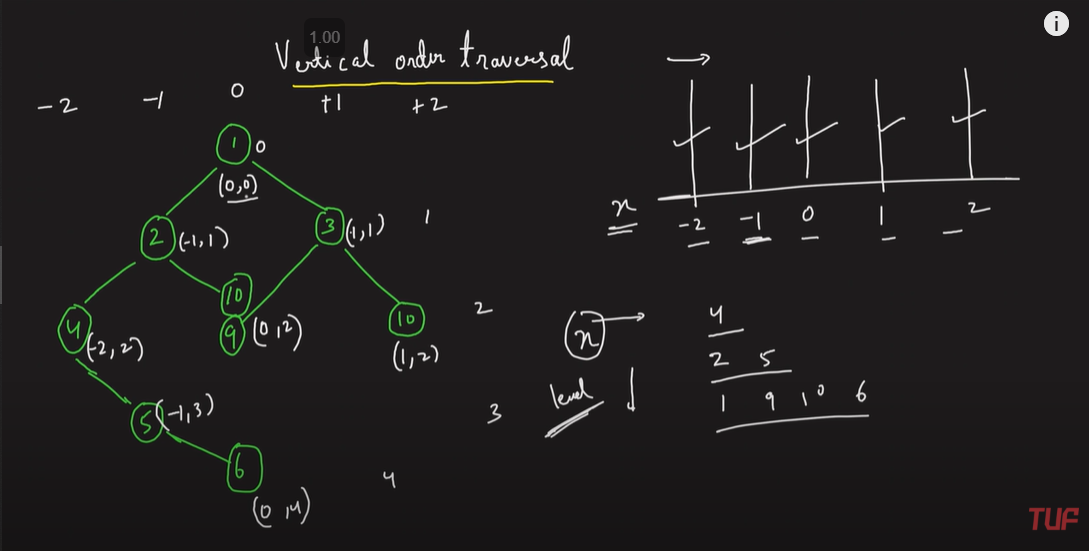 1.00
Vertical order traversal
-2 -1 0 +1 +2
1 0
(0,0)
2 (-1,1)
3 (1,1) 1
10
4 (-2,2)
9 (0,2)
10 (1,2)
2
5 (-1,3)
3
6
(0,4)
4
x -2 -1 0 1 2
x
level
4
2 5
1 9 10 6
TUF